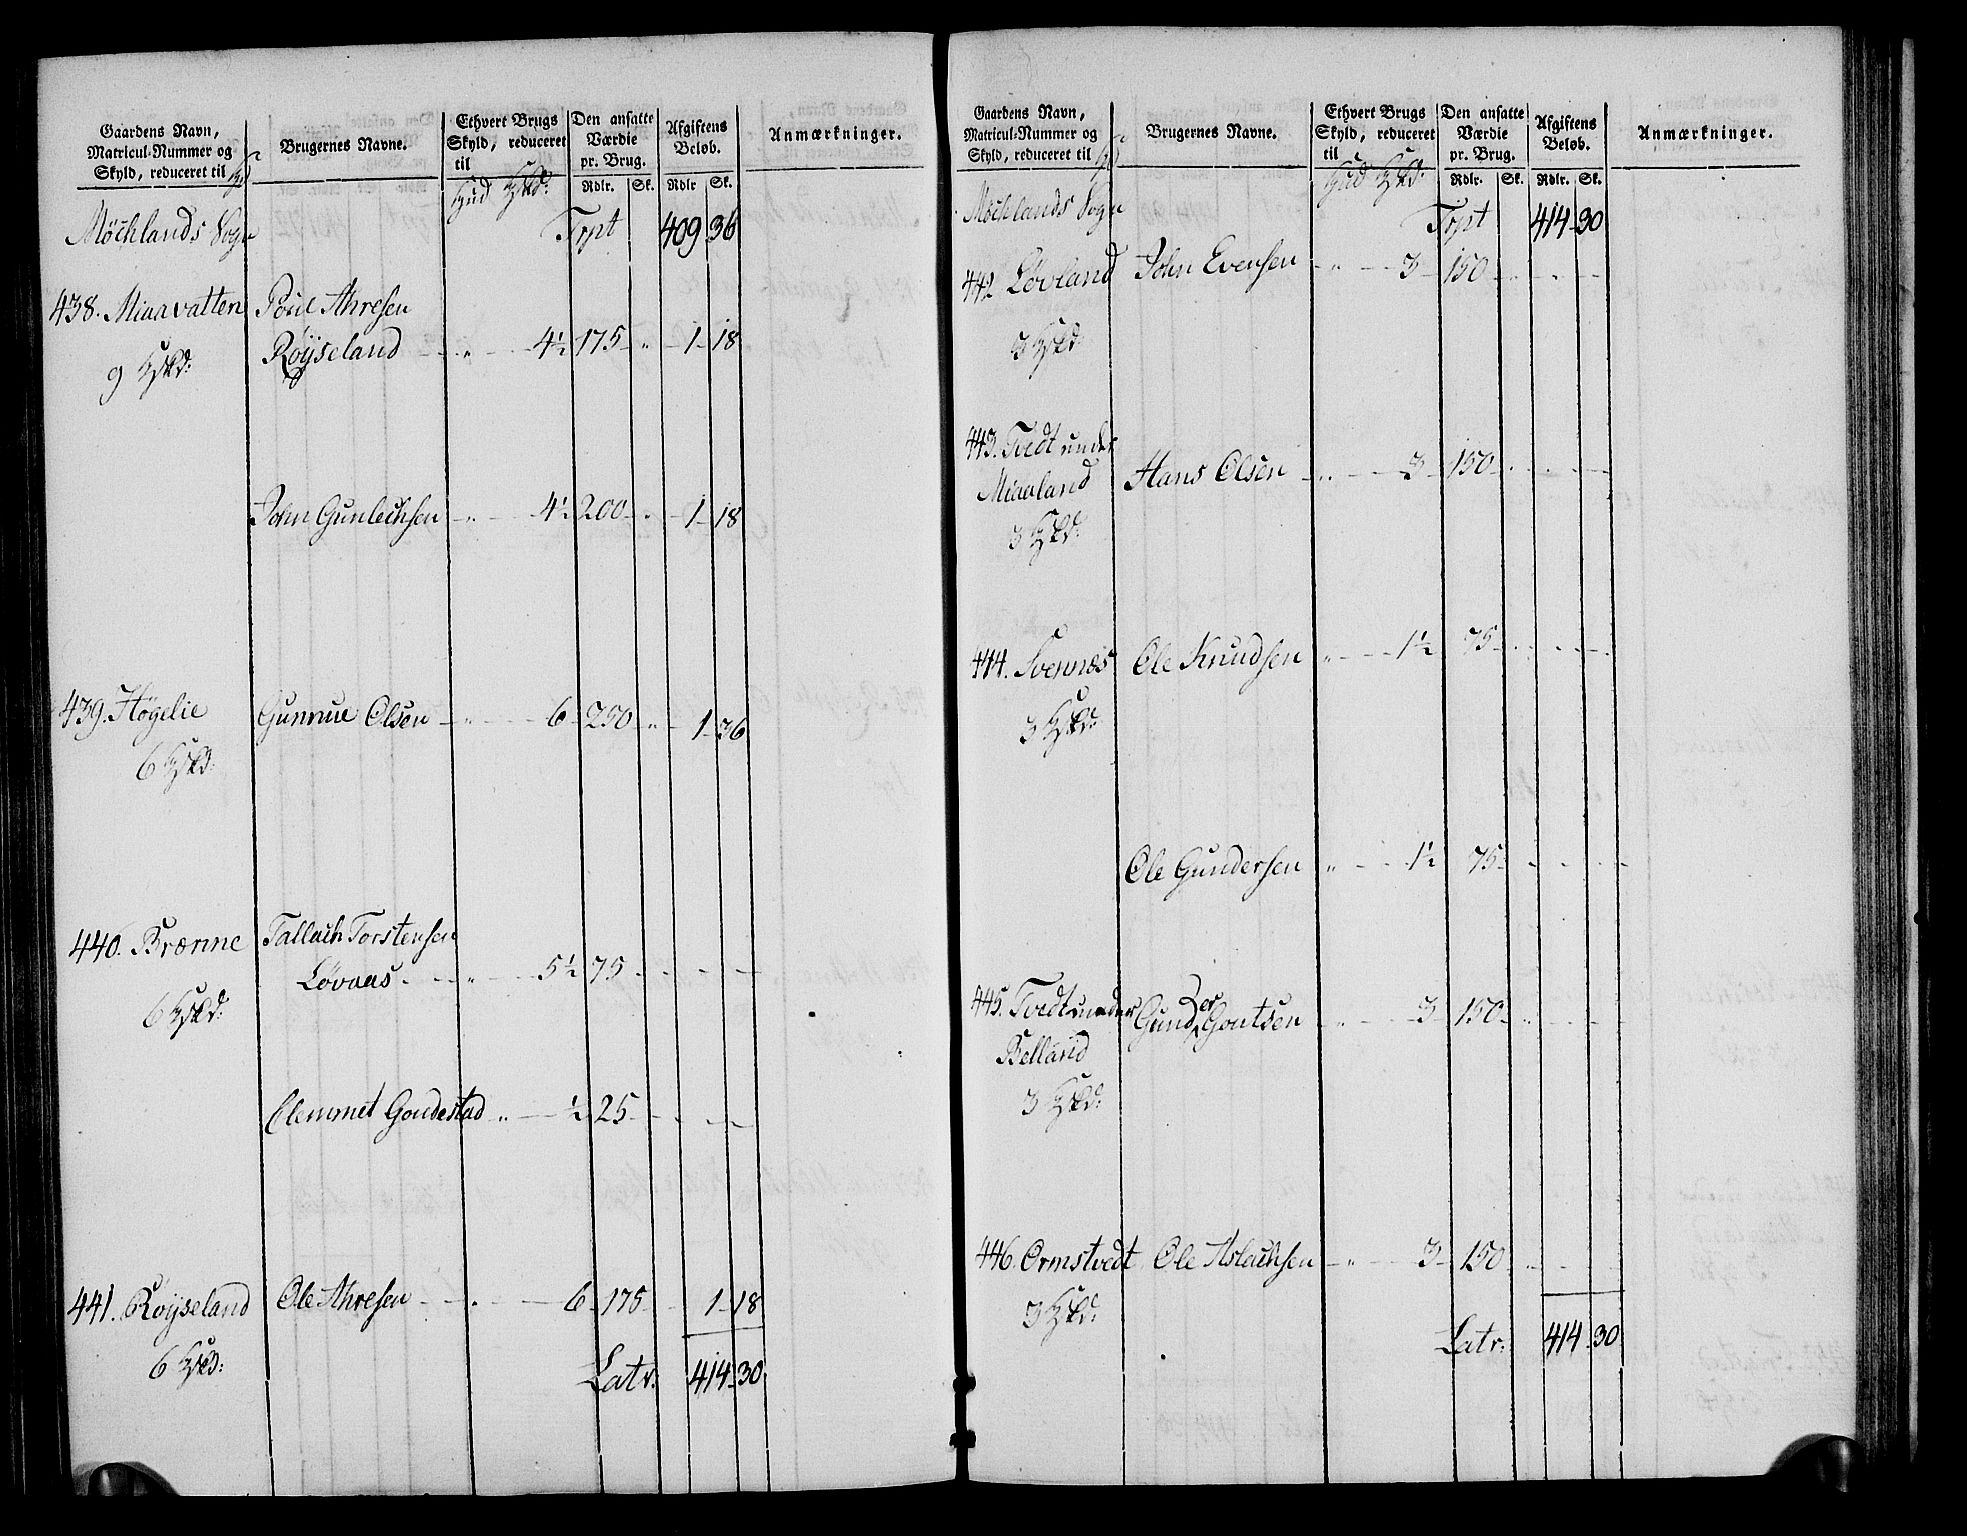 Gaardens Navn,
Matricul-Nummer og
Skyld, reduceret til
Brugernes Navne.
Ethvert Brugs
Skyld, reduceret
til
Hud
Den ansatte
Værdie
pr. Brug.
Rdlr. Sk.
Afgiftens
Beløb.
Rdlr Sk.
Anmærkninger.
Møchlands Sogn Trpt 409 36
438. Miaavatten
Røyseland 4½ 175 " 1 18
9
John Gunlechsen " 4½ 200 1 18
439. Høgelie Gunnue Olsen " 6 250 " 1 36
6
440. Brænne Tallach Torstensen
Løvaas " 5½ 75
6
Clemmet Goudestad " ½ 25
441. Røyseland Ole Ahresen 6 175 1 18
6
Latr: 414 30
Gaardens Navn,
Matricul-Nummer og
Skyld, reduceret til
Brugernes Navne.
Ethvert Brugs
Skyld, reduceret
til
Hud
Den ansatte
Værdie
pr. Brug.
Rdlr. Sk.
Afgiftens
Beløb.
Rdlr. Sk.
Anmærkninger.
Møchlands Sogn Trpt 414 30
442 Løvland John Evensen " 3 150
3
443. Tvedt under
Miaaland Hans Olsen " 3 150
3
444. Svennæs Ole Knudsen " 1½ 75
3
Ole Gundersen " 1½ 75
445. Tvedt under Gunder Goutsen " 3 150
Belland
3
446. Ormstvedt Ole Aslachsen " 3 150
3
Latr: 414 30